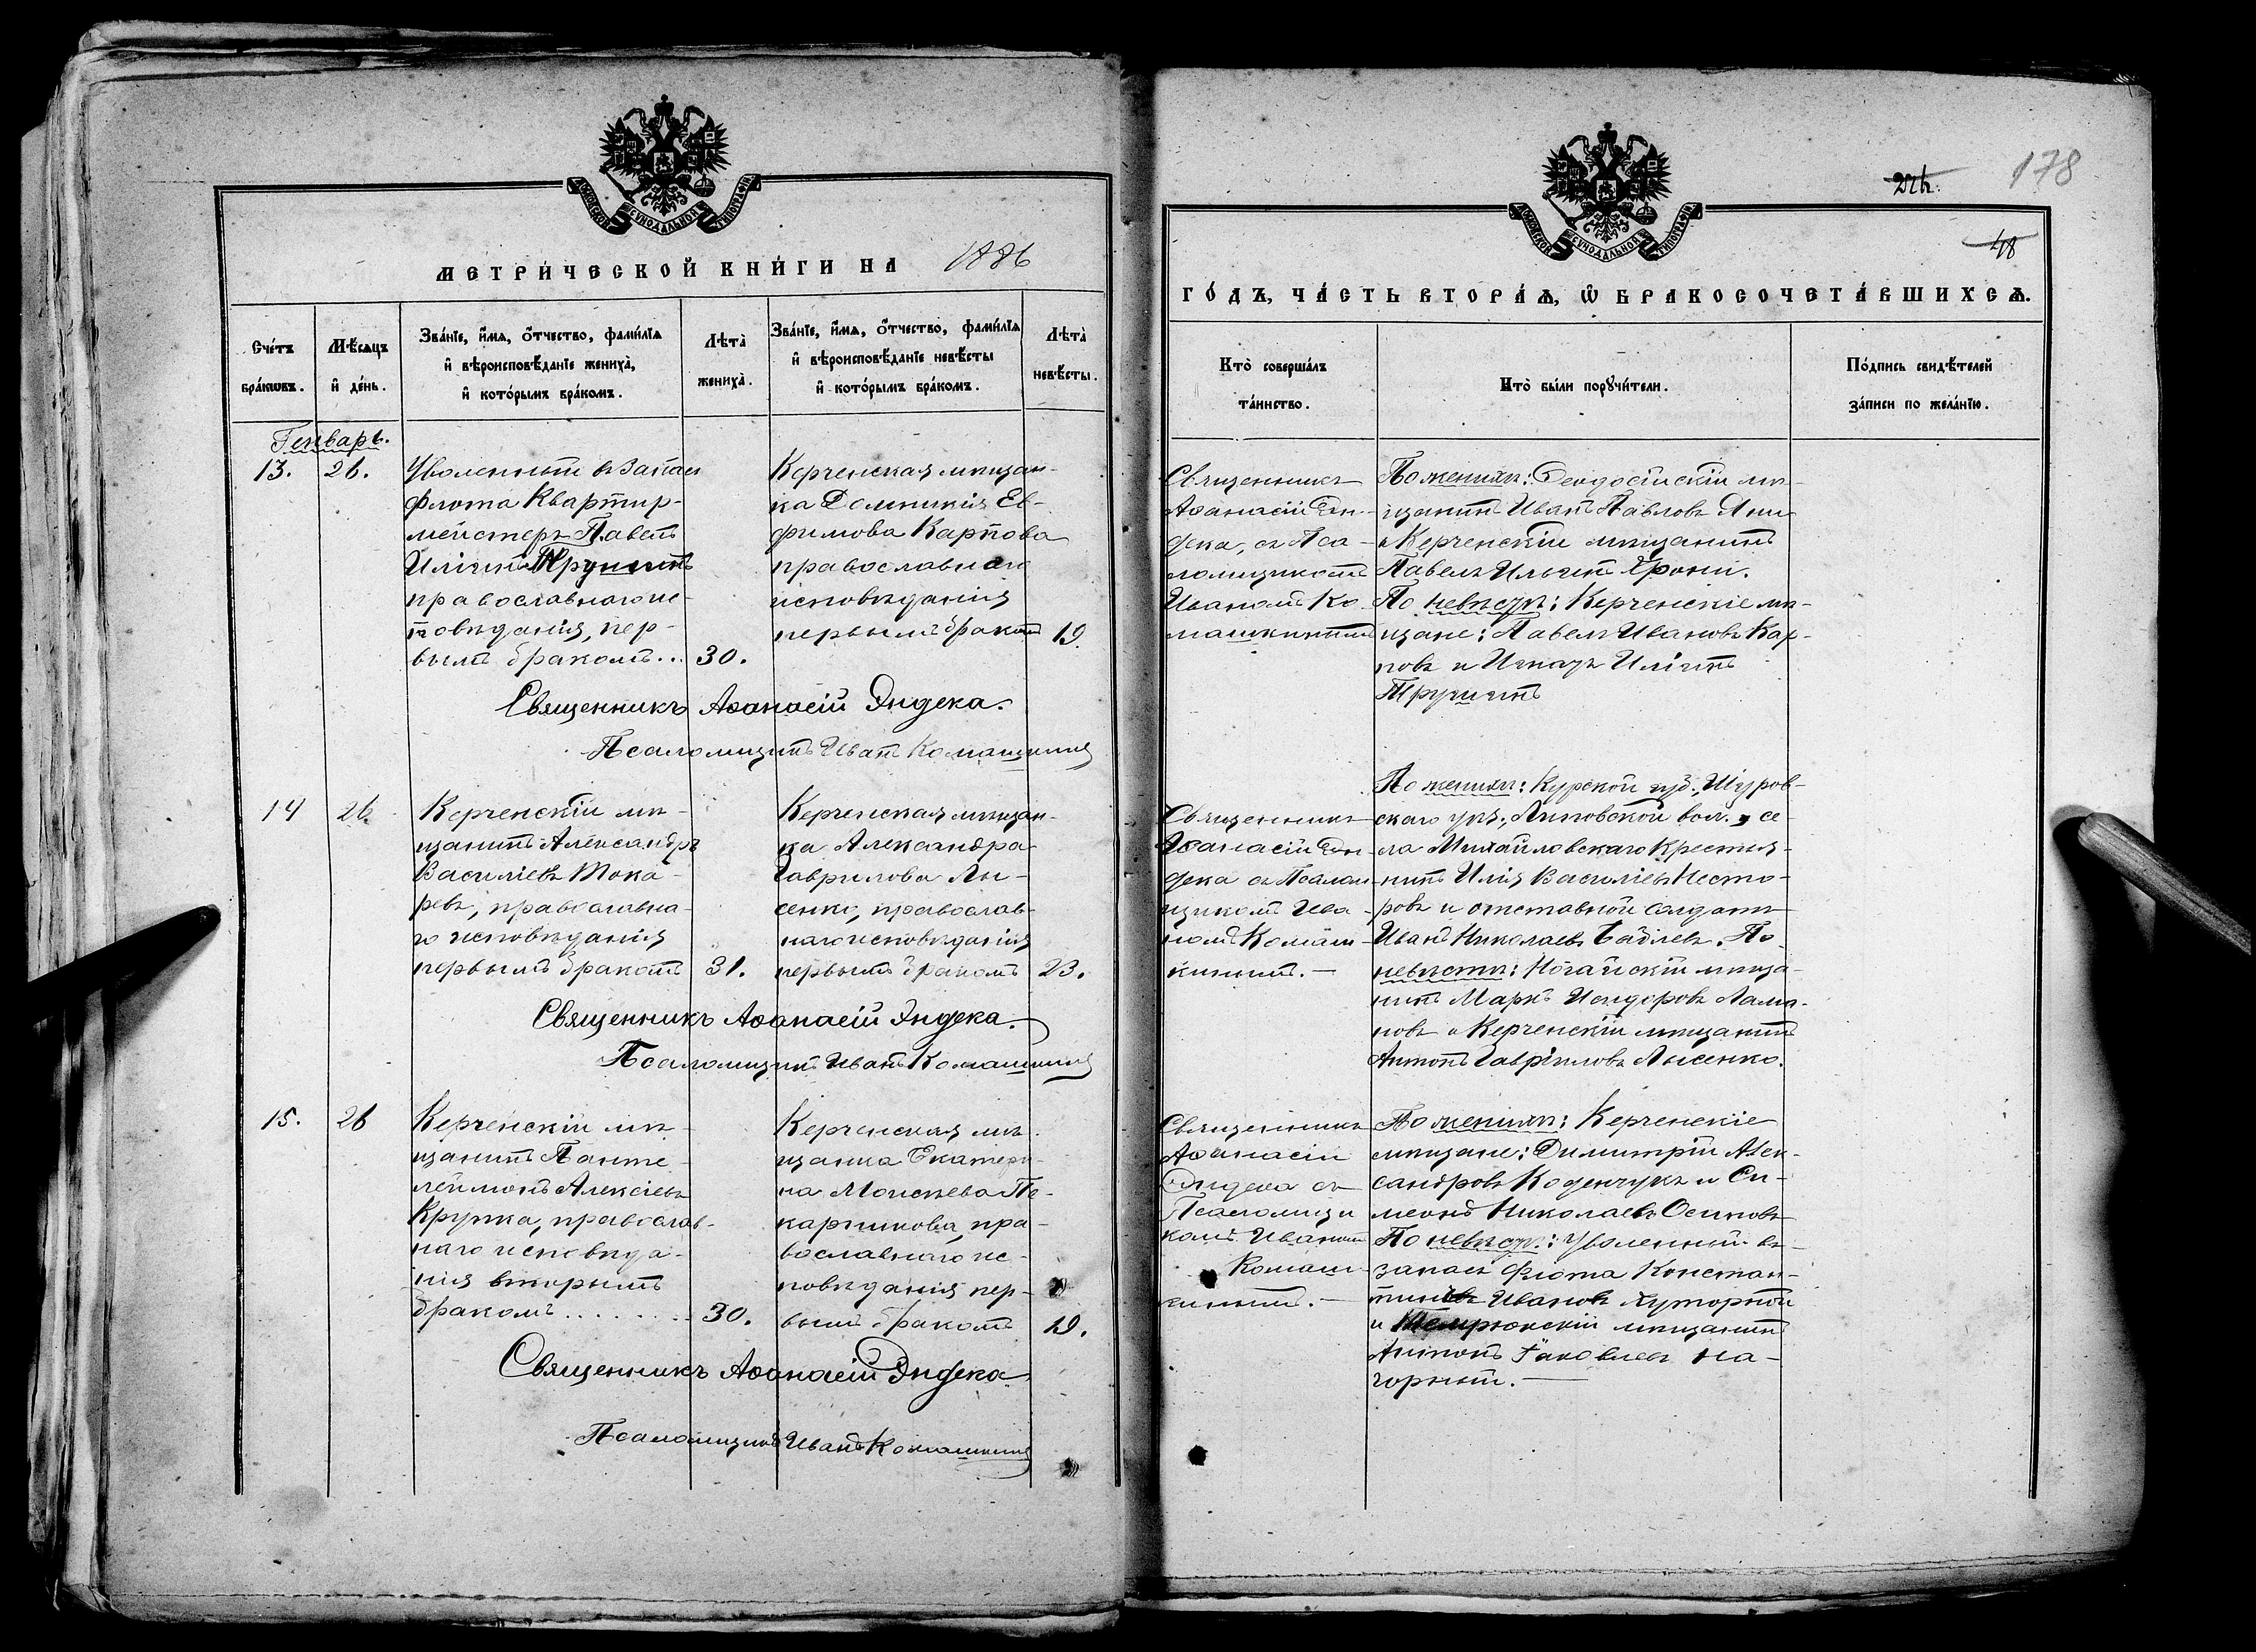 МОСКОВСКОЙ СѴНОДАЛЬНОЙ ТИПОГРАФІИ
МЕТРИ́ЧЕСКОЙ КНИ́ГИ НА 1886
Сче́тъ бра́кωвъ.
Мѣ́сѧцъ и҆ де́нь.
Зва́нїе, и҆́мѧ, ѻ҆́тчество, фами́лїѧ
и҆ вѣроисповѣ́данїе жениха̀,
и҆ кото́рымъ бра́комъ.
Лѣта̀
жениха̀.
Зва́нїе, и҆́мѧ, ѻ҆́тчество, фами́лїѧ
и҆ вѣроисповѣ́данїе невѣ́сты
и҆ кото́рымъ бра́комъ.
Лѣта̀
невѣ́сты.
Генварь.
13. 26.
Уволенный въ запасъ
флота Квартир-
мейстеръ Павелъ
Иліинъ
православнаго ис-
повѣданія, пер-
вымъ бракомъ... 30.
Керченская мѣщан-
ка Домникія Ев-
фимова Карпова
православнаго
исповѣданія
первымъ бракомъ 19.
Священникъ Аѳанасій Эндека.
Псаломщикъ Иванъ Комашкинъ
14 26.
Керченскій мѣ-
щанинъ Александръ
Василіевъ Тока-
ревъ, православна-
го исповѣданія
первымъ бракомъ 31.
Керченская мѣщан-
ка Александра
Гаврилова Лы-
сенко, православ-
наго исповѣданія
первымъ бракомъ 23.
Священникъ Аѳанасій Эндека.
Псаломщикъ Иванъ Комашкинъ
15. 26
Керченскій мѣ-
щанинъ Панте-
леймонъ Алексіевъ
Крупка, православ-
наго исповѣда-
нія вторымъ
бракомъ........ 30.
Керченская мѣ-
щанка Екатери-
на Моисѣева Пе-
карникова, пра-
вославнаго ис-
повѣданія пер-
вымъ бракомъ 19.
Священникъ Аѳанасій Эндека
Псаломщикъ Иванъ Комашкинъ
178
48
МОСКОВСКОЙ СѴНОДАЛЬНОЙ ТИПОГРАФІИ
ГО́ДЪ, ЧА́СТЬ ВТОРА́Ѧ, Ѽ БРАКОСОЧЕТА́ВШИХСѦ.
Кто̀ соверша́лъ
та́инство.
Кто̀ бы́ли порꙋчи́тели.
По́дпись свидѣ́телей
за́писи по жела́нїю.
Священникъ
Аѳанасій Эн-
дека, съ Пса-
ломщикомъ
Иваномъ Ко-
машкинымъ
По женихѣ: Ѳеодосійскій мѣ-
щанинъ Иванъ Павловъ
и Керченскій мѣщанинъ
Павелъ Ильинъ
По невѣстѣ: Керченскіе мѣ-
щане: Павелъ Ивановъ Кар-
повъ и Игнатъ Иліинъ
Священникъ
Аѳанасій Эн-
дека съ Псалом-
щикомъ Ива-
номъ Комаш-
кинымъ.—
По женихѣ: Курской губ. Щигров-
скаго уѣз., Липовской вол., се-
ла Михайловскаго Крестья-
нинъ Илія Василіевъ Несто-
ровъ и отставной солдатъ
Иванъ Николаевъ. По
невѣстѣ: Ногайскій мѣща-
нинъ Маркъ
и Керченскій мѣщанинъ
Антонъ Гавріиловъ Лысенко.
Священникъ
Аѳанасій
Эндека съ
Псаломщи
комъ Иваномъ
Комаш-
кинымъ.—
По женихѣ: Керченскіе
мѣщане: Димитрій Алек-
сандровъ Коденчукъ и Си-
меонъ Николаевъ Осиповъ
По невѣстѣ: Уволенный въ
запасъ флота Констан-
тинъ Ивановъ Хуторной
и Темрюкскій мѣщанинъ
Антонъ Іаковлевъ На-
горный.—